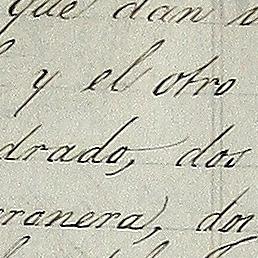 que dan
y el otro
drado, dos
ronera), dos